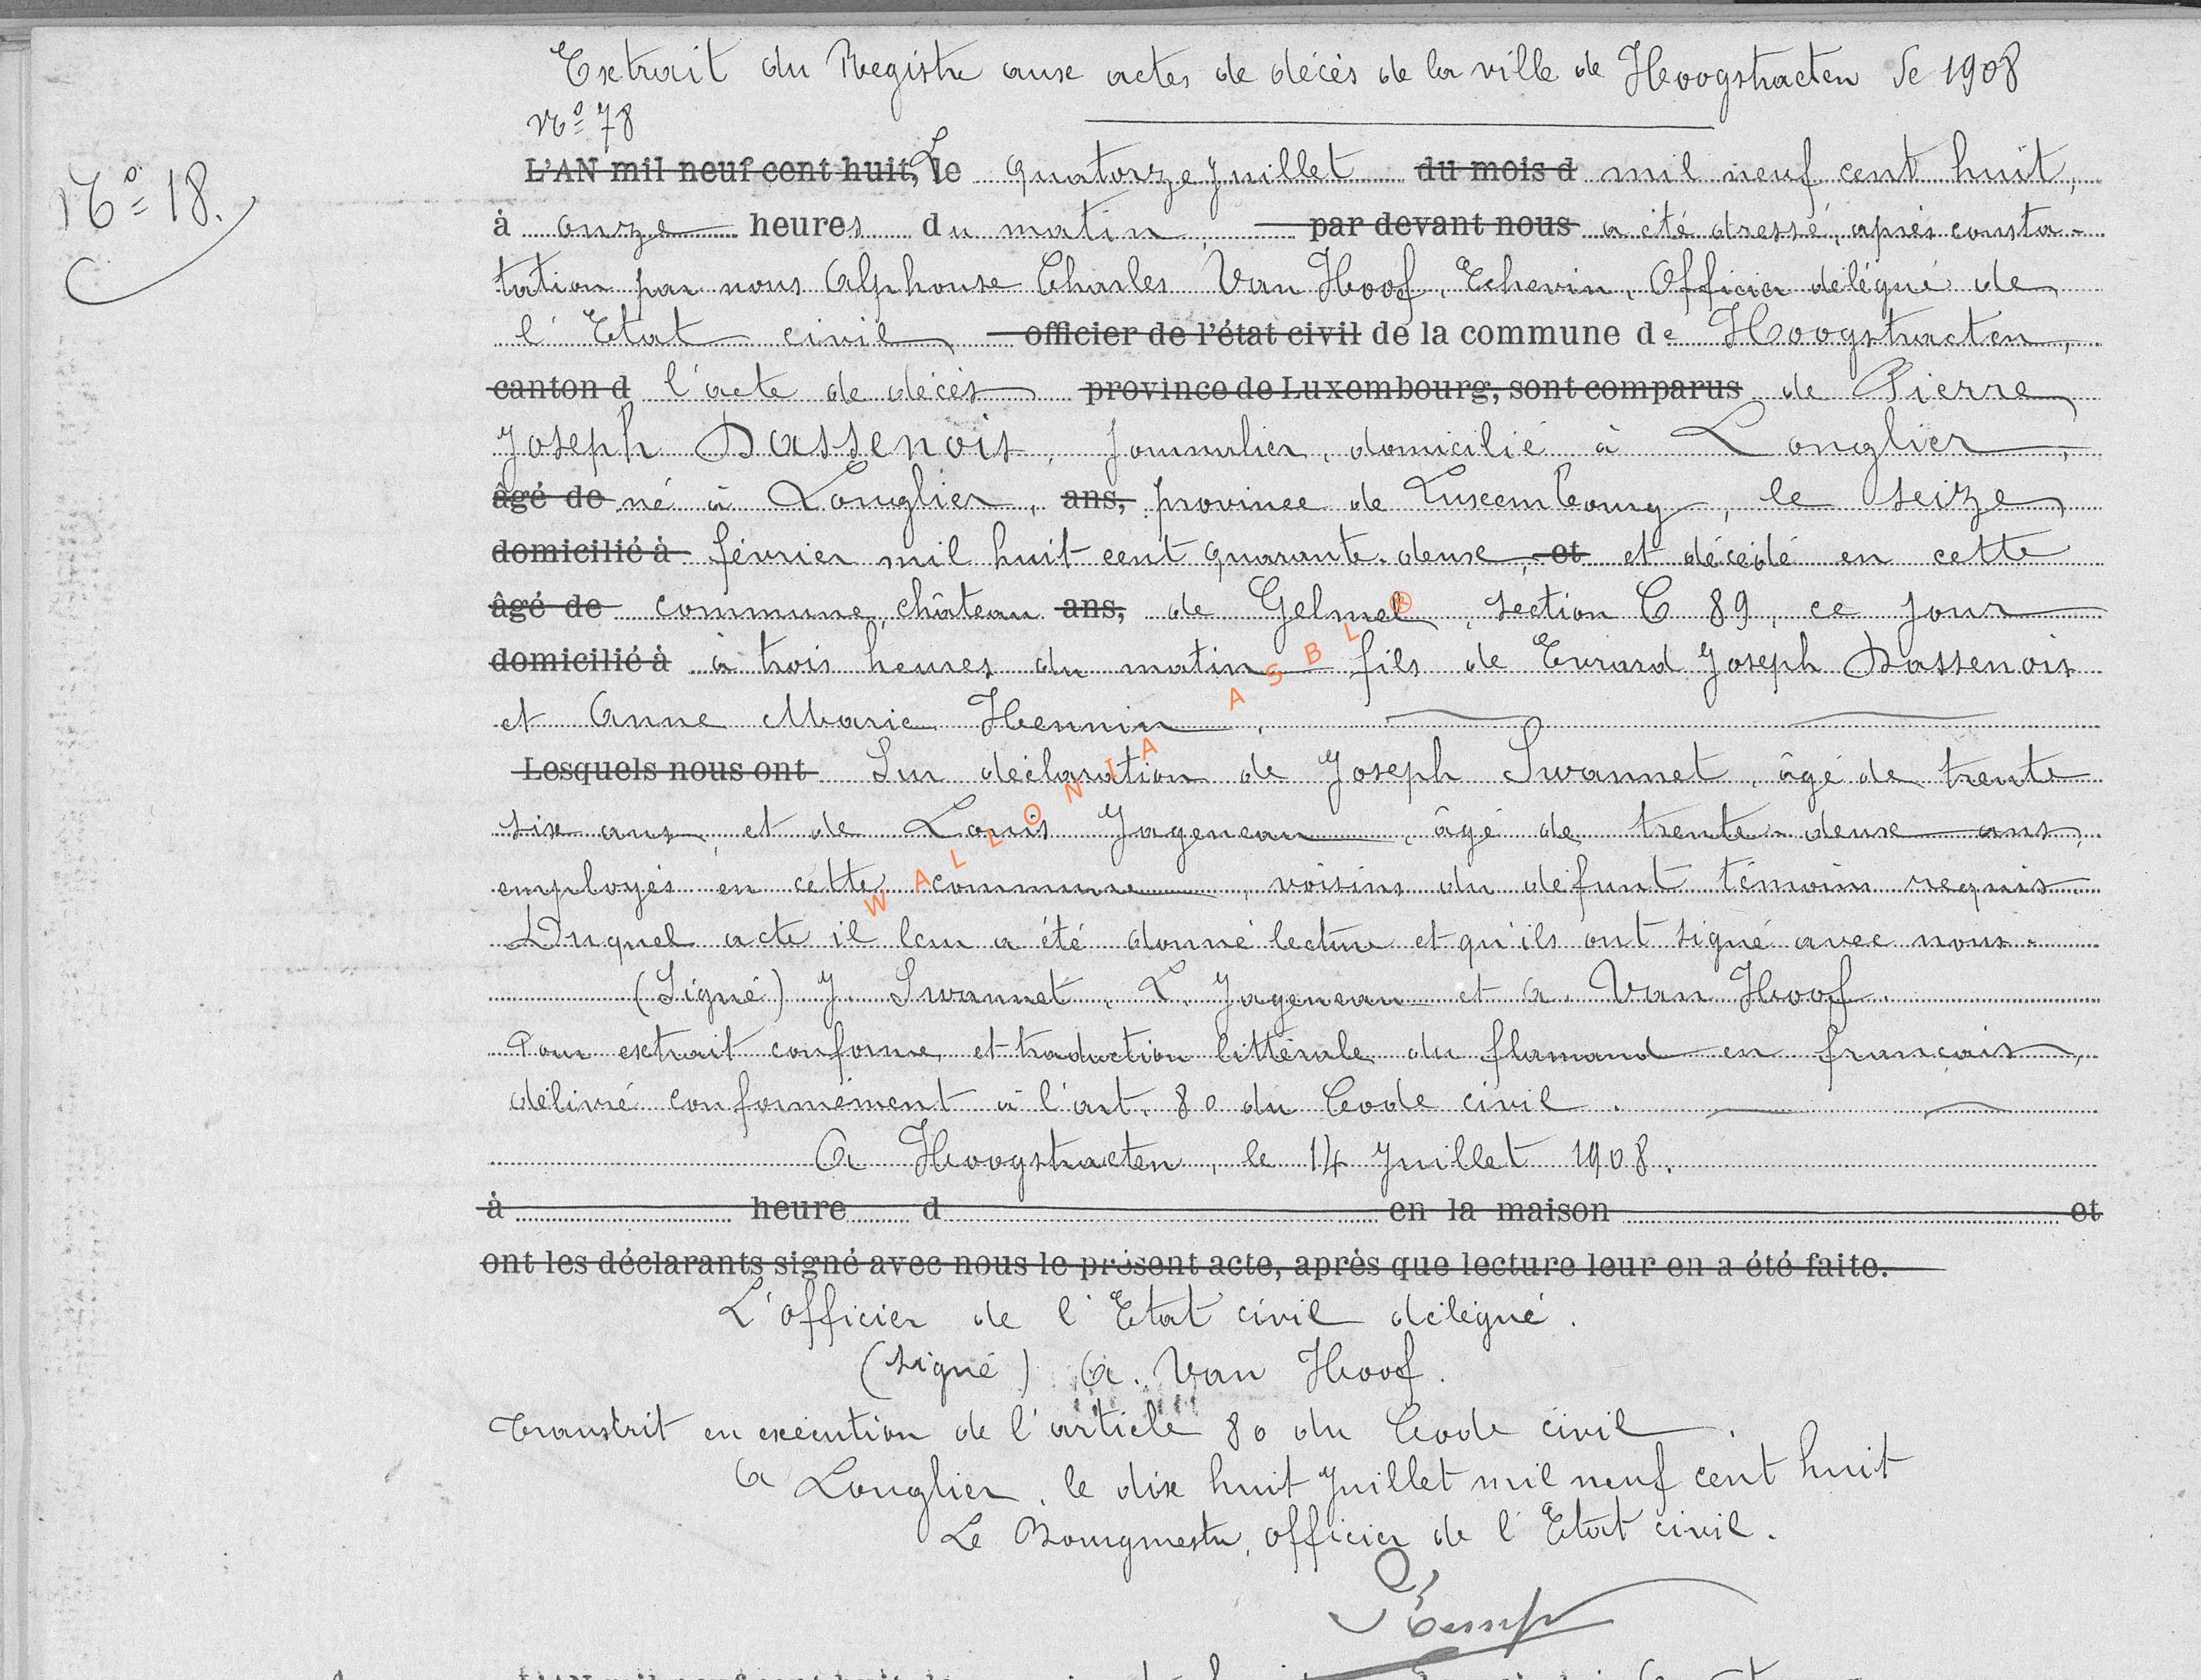 Extrait du Registre aux actes de décès de la ville de Hoogstraeten de 1908
Nº 78
Nº 18.
L'AN mil neuf cent huit, Le quatorze Juillet du mois d mil neuf cent huit,
à onze heures du matin, par devant nous a été dressé, après consta-
tation par nous Alphonse Charles Van Hoof, Echevin, Officier délégué de
l'Etat civil officier de l'état civil de la commune de Hoogstraeten,
canton d l'acte de décès province de Luxembourg, sont comparus de Pierre
Joseph Dassenois, journalier, domicilié à Longlier,
âgé de né à Longlier, ans, province de Luxembourg, le seize
domicilié à février mil huit cent quarante-deux, et et décédé en cette
âgé de commune, château ans, de Gelmel, section C 89, ce jour
domicilié à à trois heures du matin fils de Evrard Joseph Dassenois
et Anne Marie Hennin.
Lesquels nous ont Sur déclaration de Joseph Swannet, âgé de trente
six ans, et de Louis Jageneau, âgé de trente-deux ans,
employés en cette commune, voisins du défunt témoins requis.
Duquel acte il leur a été donné lecture et qu'ils ont signé avec nous.
(Signé) J. Swannet, L. Jageneau et A. Van Hoof.
Pour extrait conforme et traduction littérale du flamand en français,
délivré conformément à l'art. 80 du Code civil.
A Hoogstraeten, le 14 Juillet 1908.
à heure d en la maison et
ont les déclarants signé avec nous le présent acte, après que lecture leur en a été faite.
L'officier de l'Etat civil délégué.
(signé) A. Van Hoof.
Transcrit en exécution de l'article 80 du Code civil.
A Longlier, le dix huit Juillet mil neuf cent huit
Le Bourgmestre, officier de l'Etat civil.
WALLONIA ASBL ®